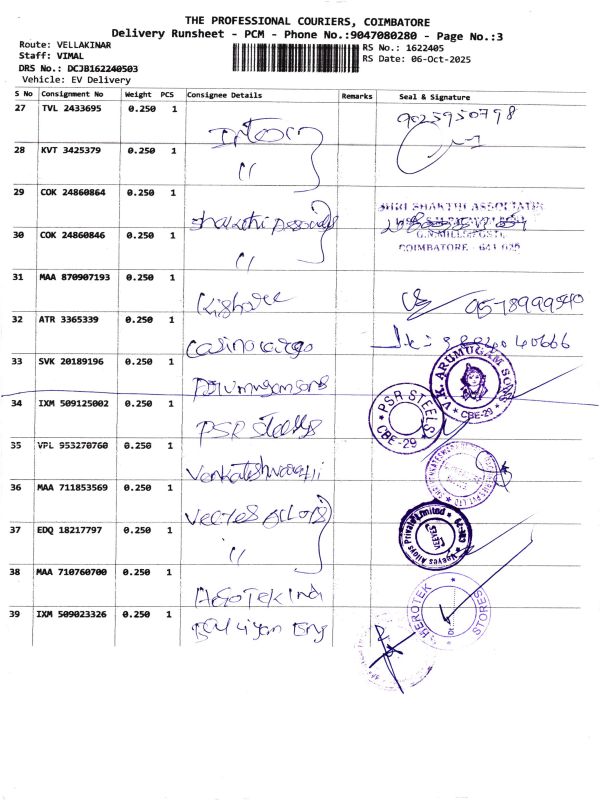 THE PROFESSIONAL COURIERS, COIMBATORE
Delivery Runsheet - PCM - Phone No.:9047080280 - Page No.:3
Route: VELLAKINAR
Staff: VIMAL
DRS No.: DCJB162240503
Vehicle: EV Delivery
RS No.: 1622405
RS Date: 06-Oct-2025
S No Consignment No Weight PCS Consignee Details Remarks Seal & Signature
27 TVL 2433695 0.250 1 9025950798
28 KVT 3425379 0.250 1 "
29 COK 24860864 0.250 1 SHRI SHAKTHI ASSOCIATES
30 COK 24860846 0.250 1 "
COIMBATORE - 641 025
31 MAA 870907193 0.250 1 Kishore 9578999540
32 ATR 3365339 0.250 1 Casino cargo
33 SVK 20189196 0.250 1 V.K. ARUMUGAM SONS * CBE-29 *
34 IXM 509125002 0.250 1 PSR Steels * PSR STEELS * CBE-29
35 VPL 953270760 0.250 1
36 MAA 711853569 0.250 1 Veeyes Alloys
37 EDQ 18217797 0.250 1 " Veeyes Alloys Private Limited * CBE-29 * VEEYES
38 MAA 710760700 0.250 1 Aerotek Ind
39 IXM 509023326 0.250 1 Eng AEROTEK * STORES